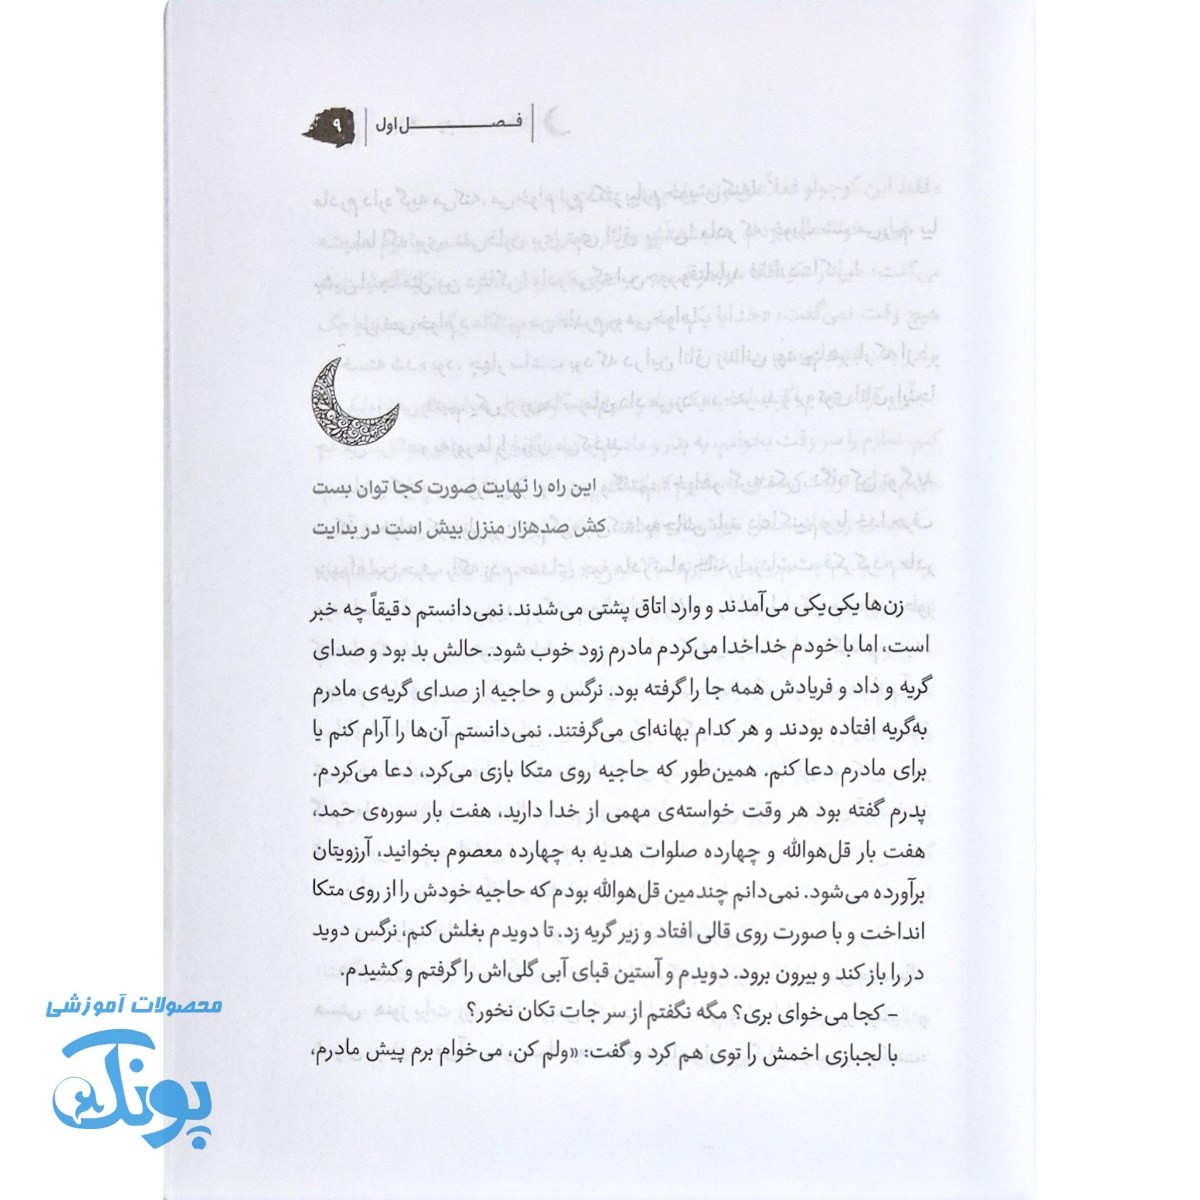 فصل اول
۹
این راه را نهایت صورت کجا توان بست
کش صدهزار منزل بیش است در بدایت
زن‌ها یکی‌یکی می‌آمدند و وارد اتاق پشتی می‌شدند. نمی‌دانستم دقیقاً چه خبر
است، اما با خودم خداخدا می‌کردم مادرم زود خوب شود. حالش بد بود و صدای
گریه و داد و فریادش همه جا را گرفته بود. نرگس و حاجیه از صدای گریه‌ی مادرم
به‌گریه افتاده بودند و هر کدام بهانه‌ای می‌گرفتند. نمی‌دانستم آن‌ها را آرام کنم یا
برای مادرم دعا کنم. همین‌طور که حاجیه روی متکا بازی می‌کرد، دعا می‌کردم.
پدرم گفته بود هر وقت خواسته‌ی مهمی از خدا دارید، هفت بار سوره‌ی حمد،
هفت بار قل‌هوالله و چهارده صلوات هدیه به چهارده معصوم بخوانید، آرزویتان
برآورده می‌شود. نمی‌دانم چندمین قل‌هوالله بودم که حاجیه خودش را از روی متکا
انداخت و با صورت روی قالی افتاد و زیر گریه زد. تا دویدم بغلش کنم، نرگس دوید
در را باز کند و بیرون برود. دویدم و آستین قبای آبی گلی‌اش را گرفتم و کشیدم.
- کجا می‌خوای بری؟ مگه نگفتم از سر جات تکان نخور؟
با لجبازی اخمش را توی هم کرد و گفت: «ولم کن، می‌خوام برم پیش مادرم،
محصولات آموزشی
پونک